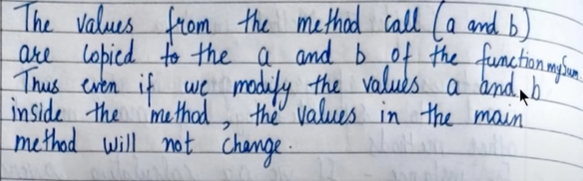 The values from the method call (a and b)
are copied to the a and b of the function mySum
Thus even if we modify the values a and b
inside the method, the values in the main
method will not change.